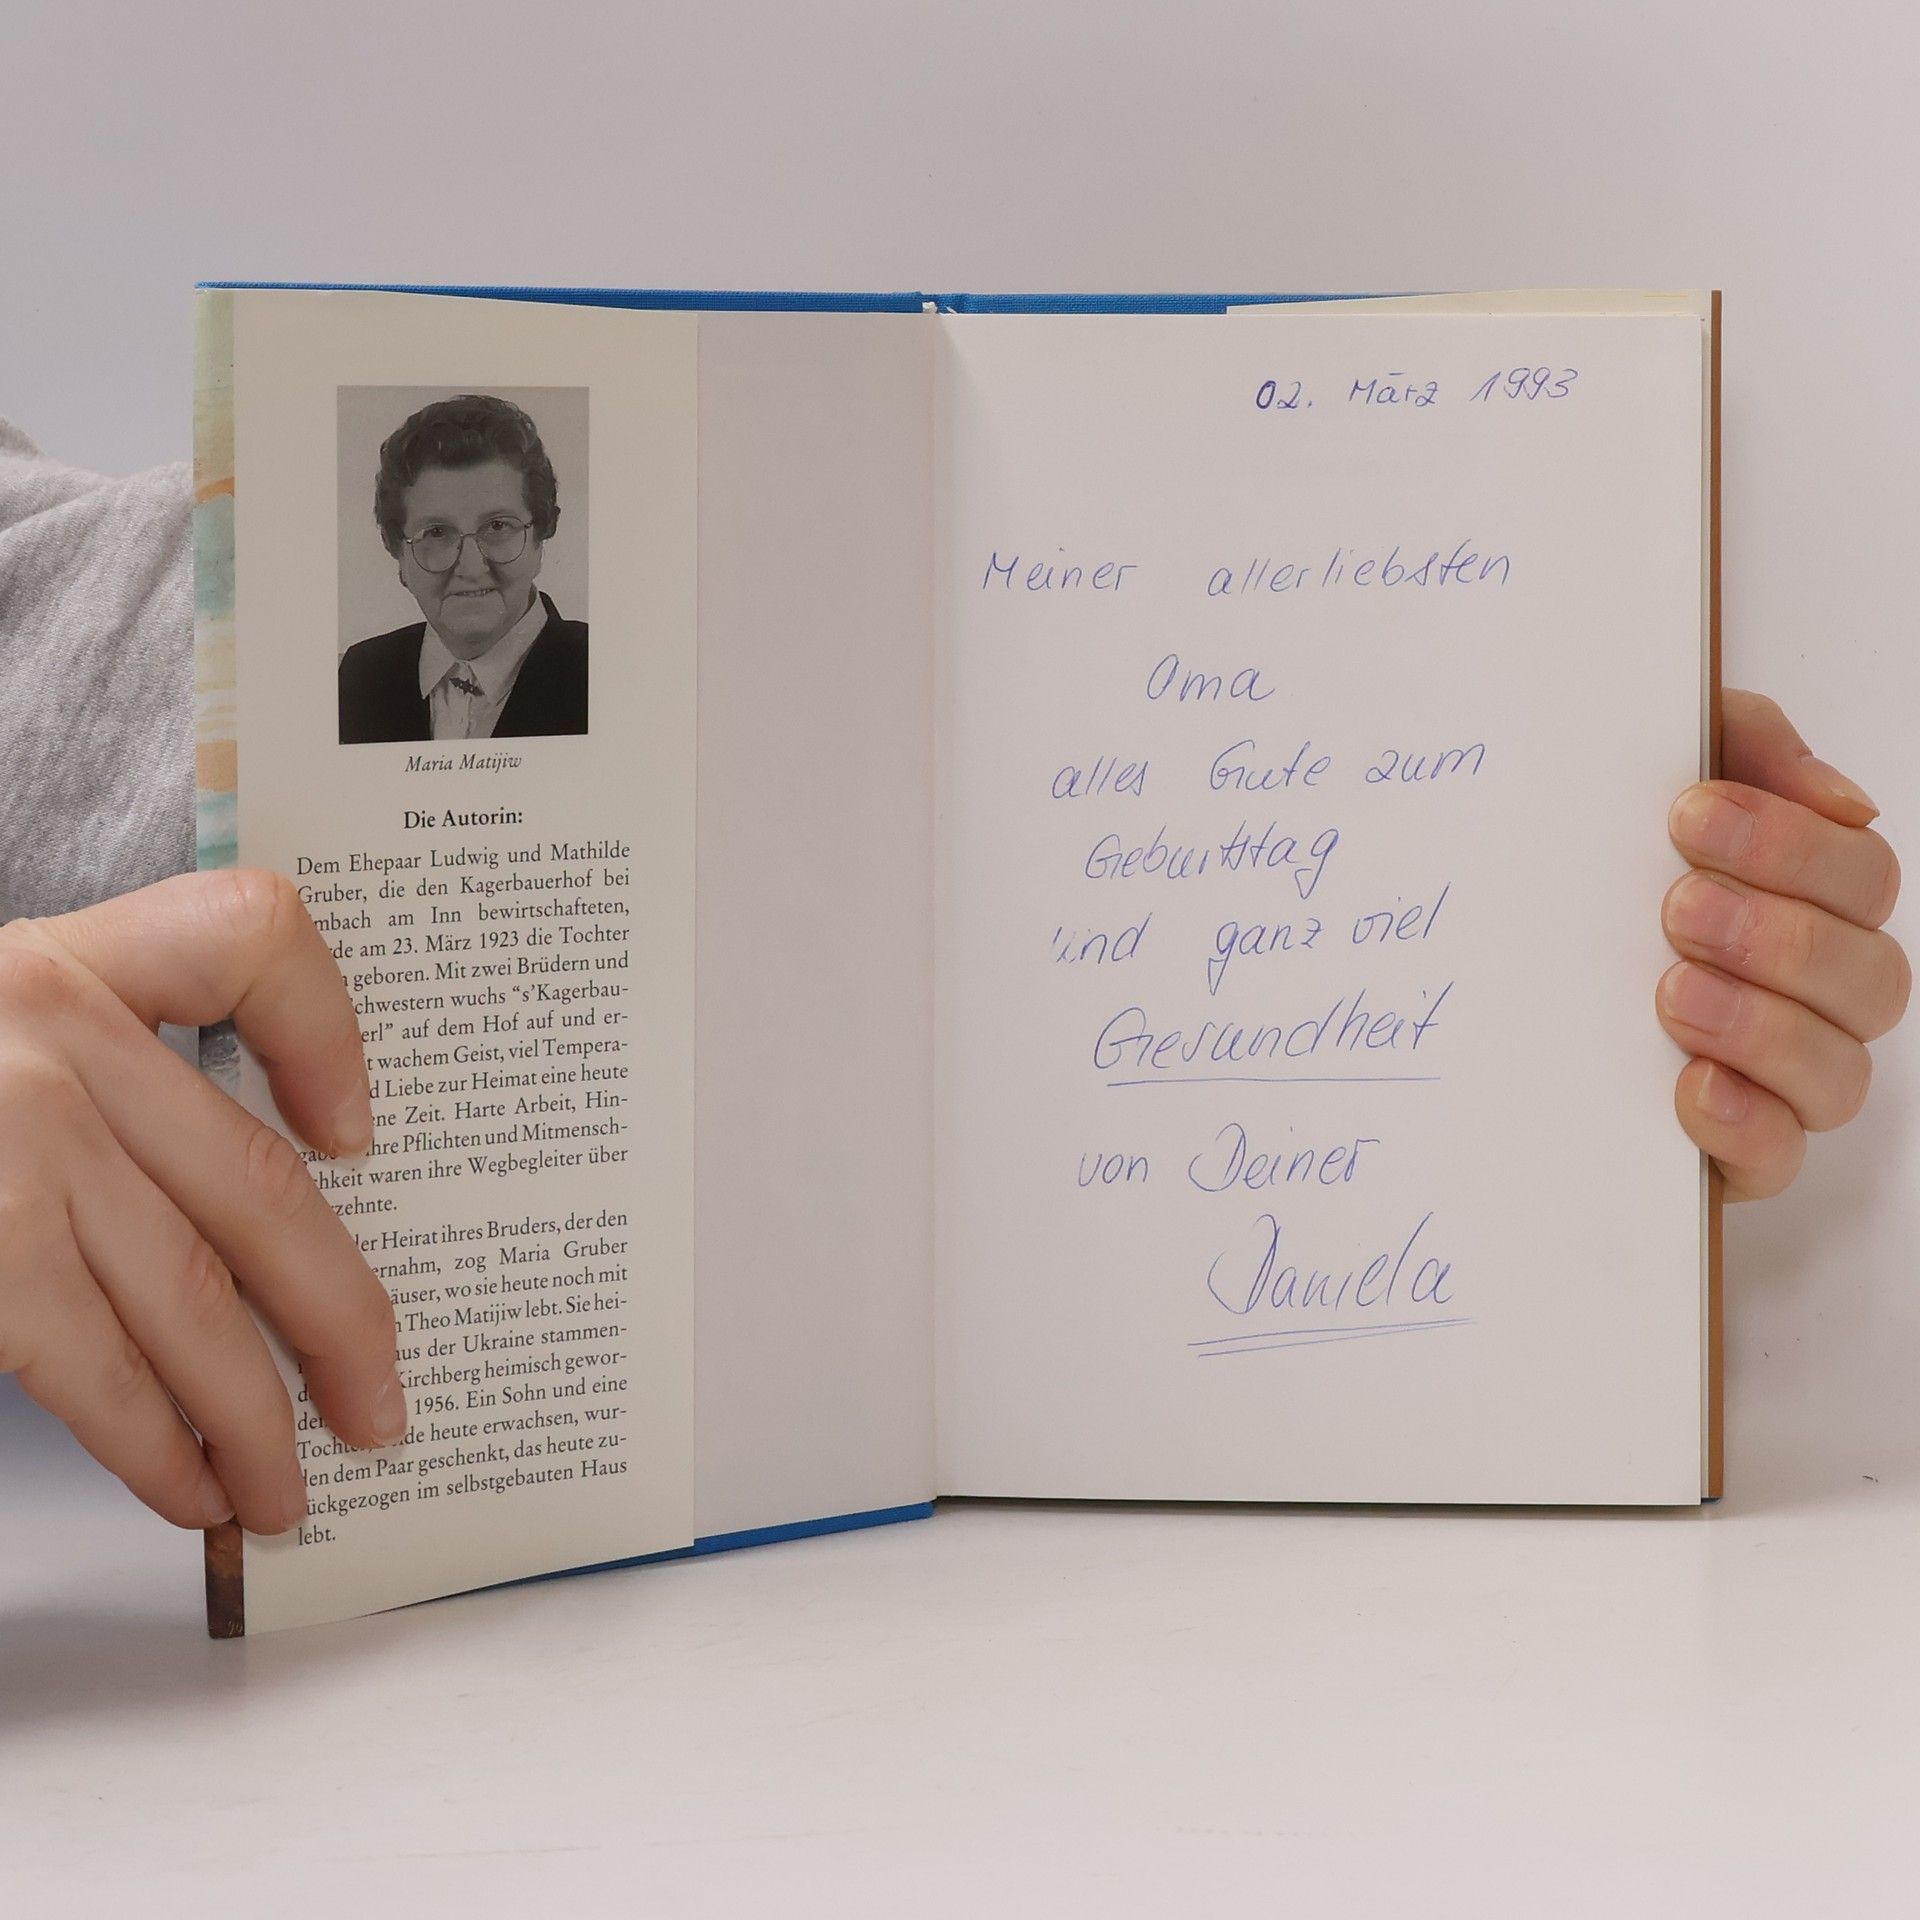 Maria Matijiw
Die Autorin:
Dem Ehepaar Ludwig und Mathilde
Gruber, die den Kagerbauerhof bei
mbach am Inn bewirtschafteten,
de am 23. März 1923 die Tochter
geboren. Mit zwei Brüdern und
chwestern wuchs “s’Kagerbau-
erl” auf dem Hof auf und er-
t wachem Geist, viel Tempera-
d Liebe zur Heimat eine heute
ene Zeit. Harte Arbeit, Hin-
gabe ihre Pflichten und Mitmensch-
hkeit waren ihre Wegbegleiter über
zehnte.
der Heirat ihres Bruders, der den
ernahm, zog Maria Gruber
äuser, wo sie heute noch mit
Theo Matijiw lebt. Sie hei-
aus der Ukraine stammen-
Kirchberg heimisch gewor-
1956. Ein Sohn und eine
Tochter, de heute erwachsen, wur-
den dem Paar geschenkt, das heute zu-
rückgezogen im selbstgebauten Haus
lebt.
02. März 1993
Meiner allerliebsten
Oma
alles Gute zum
Geburtstag
und ganz viel
Gesundheit
von Deiner
Daniela